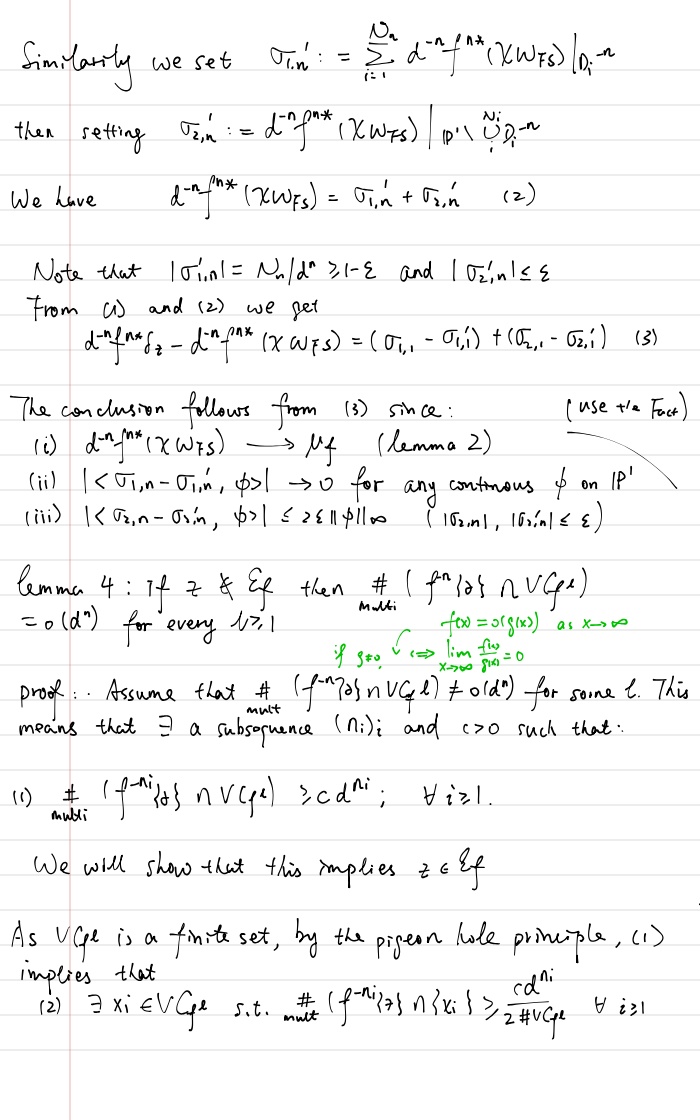 Similarily we set σ'₁,ₙ := Σᵢ₌₁^{Nₙ} d⁻ⁿ fⁿ* (χ W_FS) |_{Dᵢ⁻ⁿ}
then setting σ'₂,ₙ := d⁻ⁿ fⁿ* (χ W_FS) |_{ℙ' \ ∪ᵢ^{Nᵢ} Dᵢ⁻ⁿ}
We have d⁻ⁿ fⁿ* (χ W_FS) = σ'₁,ₙ + σ'₂,ₙ (2)
Note that |σ'₁,ₙ| = Nₙ/dⁿ ≥ 1-ε and |σ'₂,ₙ| ≤ ε
From (1) and (2) we get
d⁻ⁿ fⁿ* δ_z - d⁻ⁿ fⁿ* (χ ω_FS) = (σ₁,₁ - σ₁,'ᵢ) + (σ₂,₁ - σ₂,'ᵢ) (3)
The conclusion follows from (3) since: (use the Fact)
(i) d⁻ⁿ fⁿ* (χ W_FS) ⟶ μ_f (lemma 2)
(ii) |<σ₁,ₙ - σ₁,'ₙ, ϕ>| → 0 for any continous ϕ on ℙ'
(iii) |<σ₂,ₙ - σ₂'ₙ, ϕ>| ≤ 2ε ||ϕ||∞ (|σ₂,ₙ|, |σ₂'ₙ| ≤ ε)
lemma 4 : If z ∉ ℰ_f then #_multi (f⁻ⁿ{z} ∩ VC_{fˡ})
= o(dⁿ) for every l ≥ 1
f(x) = o(g(x)) as x → ∞
if g≠0, ⟺ lim_{x→∞} f(x)/g(x) = 0
proof : Assume that #_mult (f⁻ⁿ{z} ∩ VC_{fˡ}) ≠ o(dⁿ) for some l. This
means that ∃ a subsequence (nᵢ)ᵢ and c>0 such that:
(1) #_multi (f^{-nᵢ}{z} ∩ VC_{fˡ}) ≥ c d^{nᵢ} ; ∀ i ≥ 1.
We will show that this implies z ∈ ℰ_f
As VC_{fˡ} is a finite set, by the pigeon hole principle, (1)
implies that
(2) ∃ xᵢ ∈ VC_{fˡ} s.t. #_mult (f^{-nᵢ}{z} ∩ {xᵢ}) ≥ cd^{nᵢ} / 2 #VC_{fˡ} ∀ i ≥ 1